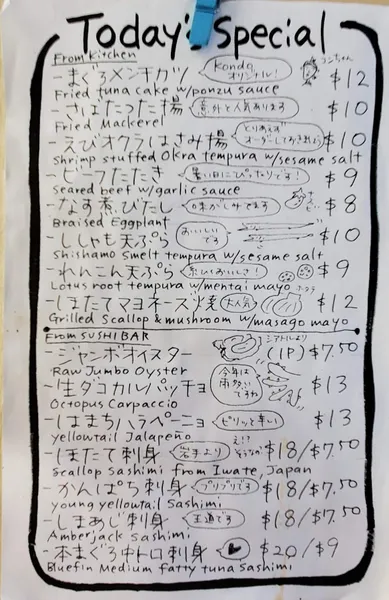 Today's Special
From Kitchen
ーまぐろメンチカツ Kondo オリジナル! コンちゃん $12
Fried tuna cake w/ponzu sauce
ーさばたつた揚 意外と人気あります $10
Fried Mackerel
ーえびオクラはさみ揚 とりあえず オーダーしておきましょう $10
Shrimp stuffed Okra tempura w/sesame salt
ービーフたたき 暑い日にぴったりです! $9
Seared beef w/garlic sauce
ーなす煮びたし 味がしみてます $8
Braised Eggplant
ーししゃも天ぷら おいしいです $10
Shishamo Smelt tempura w/sesame salt
ーれんこん天ぷら $9
Lotus root tempura w/mentai mayo
ーほたてマヨネーズ焼 大人気 ホタテ $12
Grilled Scallop & mushroom w/masago mayo
From SUSHI BAR
ージャンボオイスター シアトルより (1P) $7.50
Raw Jumbo Oyster
ー生ダコカルパッチョ 今年は雨多いですね $13
Octopus Carpaccio
ーはまちハラペーニョ ピリッと辛い $13
yellowtail Jalapeño
ーほたて刺身 岩手より え!? そうなの $18/$7.50
Scallop Sashimi from Iwate, Japan
ーかんぱち刺身 プリプリです $18/$7.50
young yellowtail Sashimi
ーしまあじ刺身 王道です $18/$7.50
Amberjack Sashimi
ー本まぐろ中トロ刺身 $20/$9
Bluefin Medium fatty tuna Sashimi